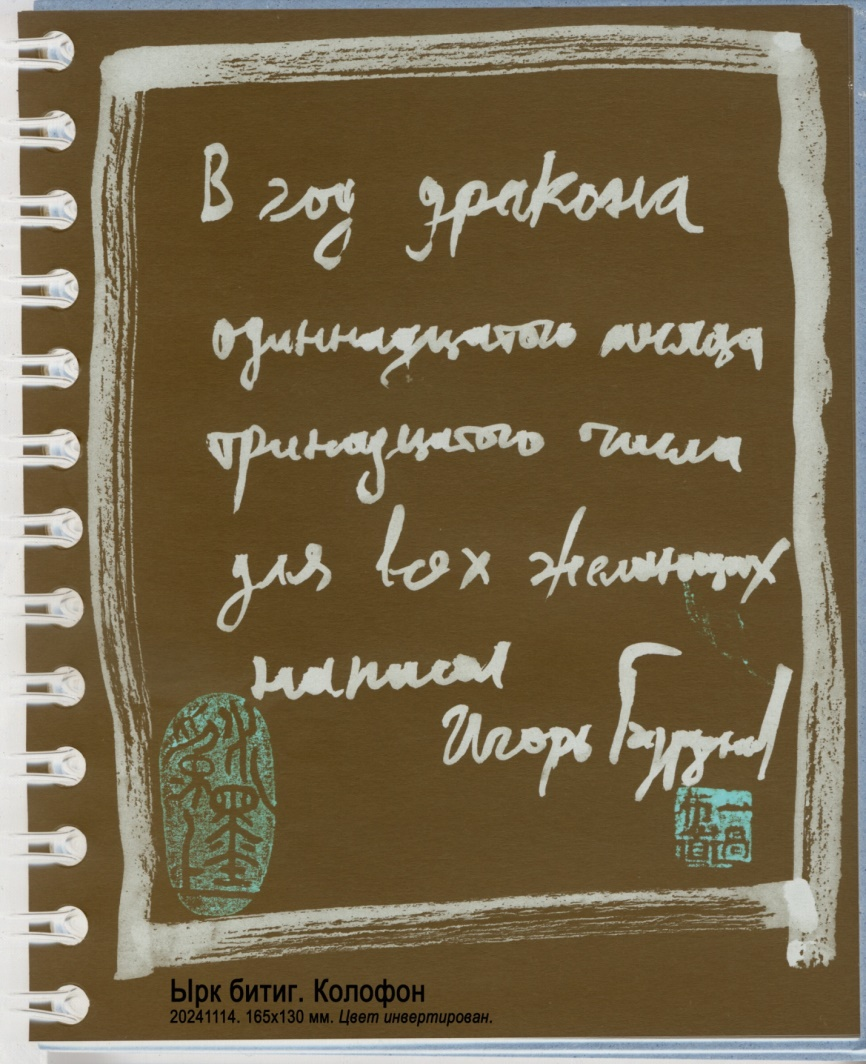 В год дракона
одиннадцатого месяца
тринадцатого числа
для всех желающих
написал
Игорь
Ырк битиг. Колофон
20241114. 165x130 мм. Цвет инвертирован.